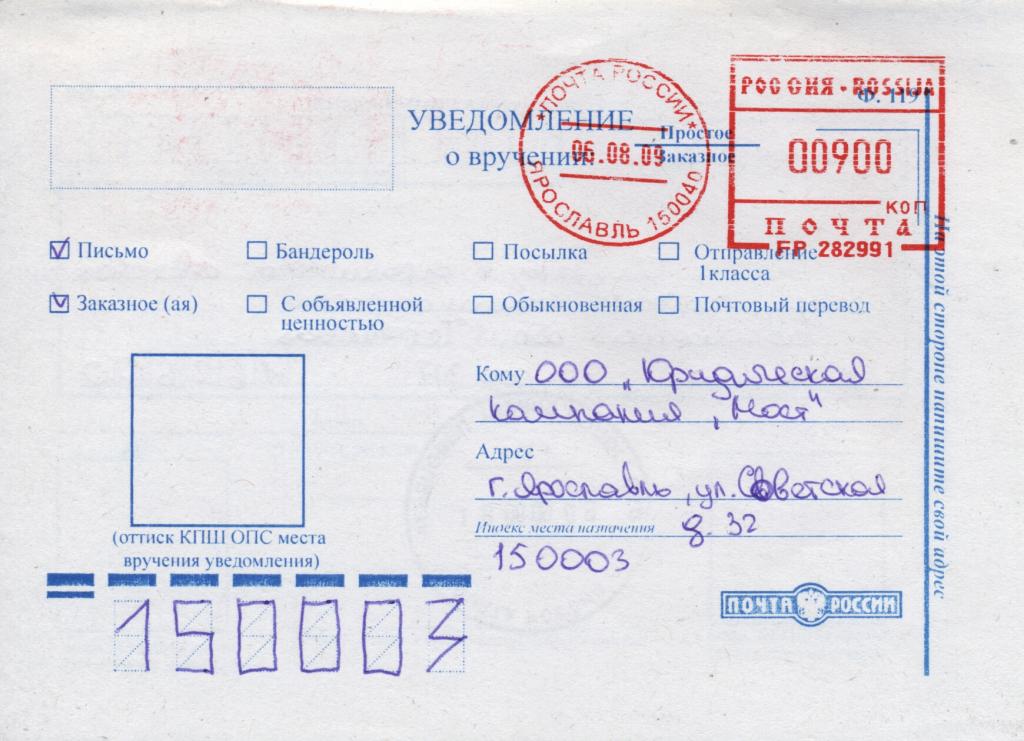 РОССИЯ · ROSSIJA
Ф. 119
00900
КОП
ПОЧТА
БР 282991
★ПОЧТА РОССИИ★
06.08.09
ЯРОСЛАВЛЬ 150040
УВЕДОМЛЕНИЕ
о вручении
Простое
Заказное
Письмо
Бандероль
Посылка
Отправление
1класса
Заказное (ая)
С объявленной
ценностью
Обыкновенная
Почтовый перевод
Кому ООО „Юридическая
компания „Мост"
Адрес
г. Ярославль, ул. Советская
Индекс места назначения д. 32
150003
(оттиск КПШ ОПС места
вручения уведомления)
150003
ПОЧТА РОССИИ
На этой стороне напишите свой адрес